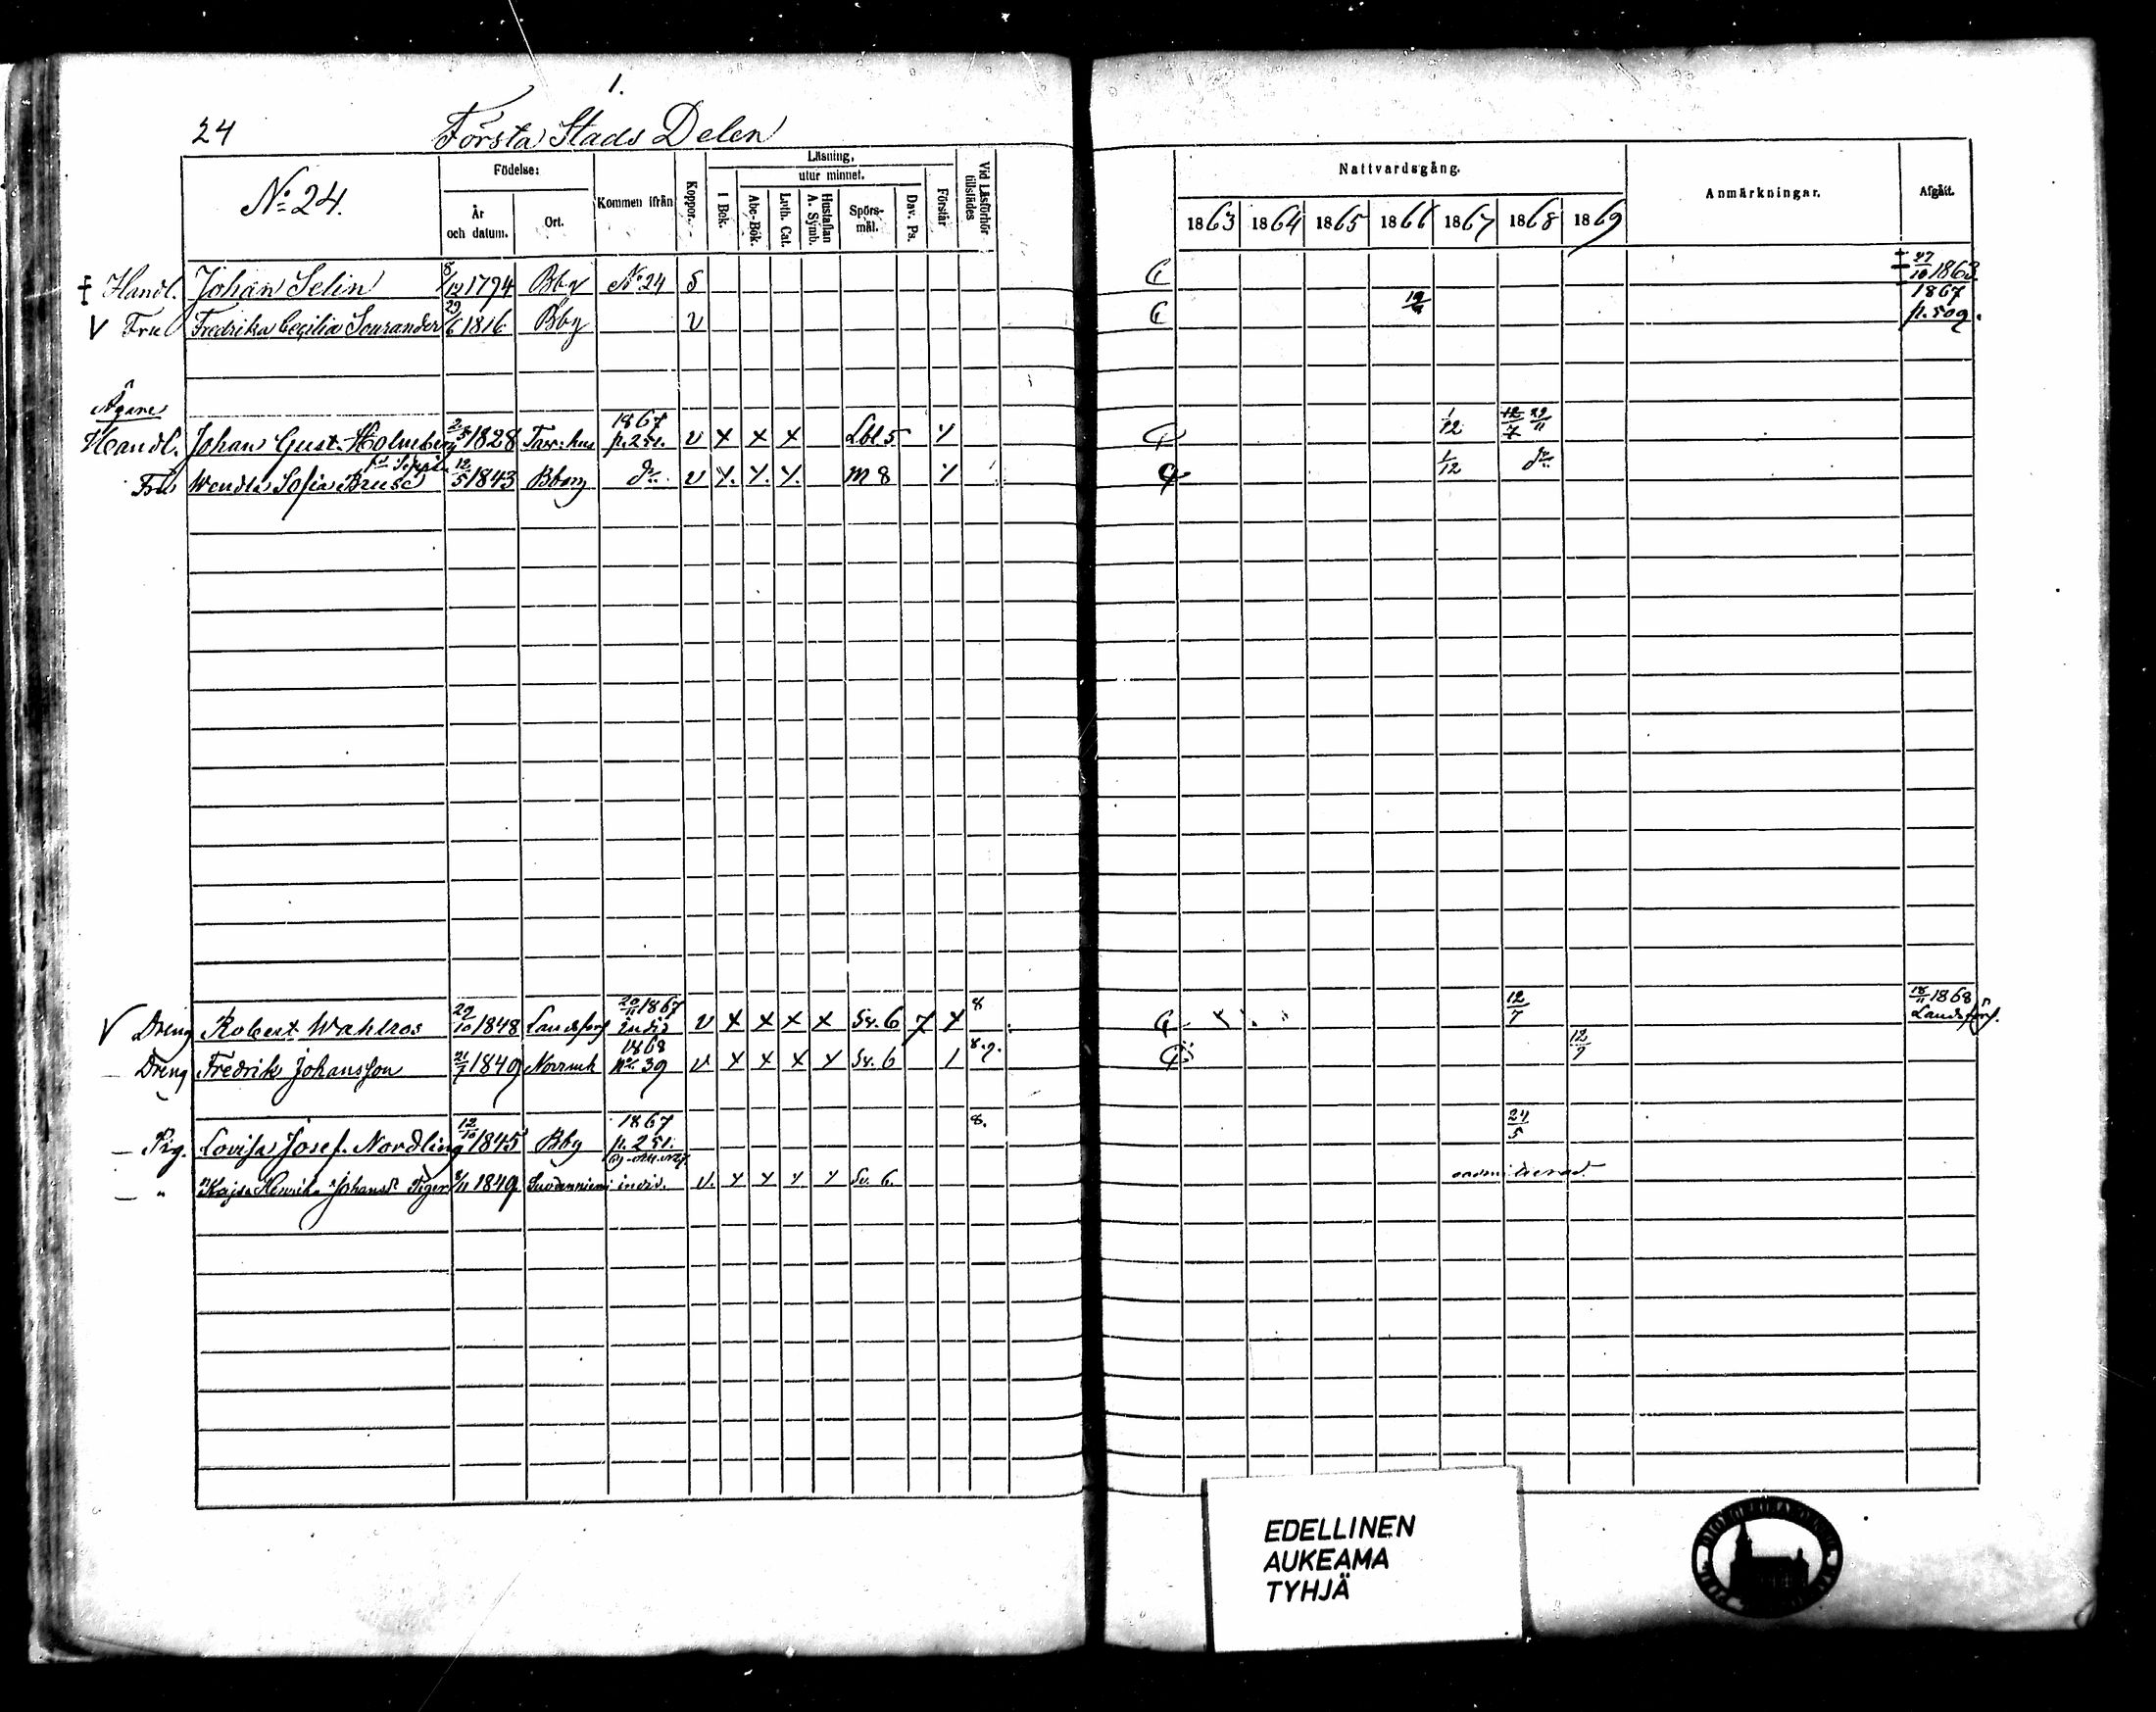 1.
24 Första Stads Delen
No 24. Födelse: Kommen ifrån Koppor. Läsning, Vid Läsförhör tillstädes
År och datum. Ort. I Bok. utur minnet. Förstår
Abc-Bok. Luth. Cat. Hustaflan A. Symb. Spörs-mål. Dav. Ps.
Nattvardsgång. Anmärkningar. Afgått.
1863 1864 1865 1866 1867 1868 1869
‡ Handl. Johan Selin 8/12 1794 Bbg No 24 S C ‡ 27/10 1863.
V Fru Fredrika Cecilia Sourander 29/6 1816 Bbg V C 1867 p. 509.
Ägare
Handl. Johan Gust. Holmberg 1828 Tav:hus 1867 p. 251. v x x x Lbl 5 1/12 12/7 29/11
Fru Wendla Sofia Bruse 12/5 1843 Bborg do v M 8 1/12 do
V Dreng Robert Wahlros 29/10 1848 Landsförs 20/11 1867 indio v x x x x Sv. 6 7 x 8 12/7 18/11 1868 Landsförs.
— Dreng Fredrik Johansson 21/7 1849 Norrmk 1868 No 39 v x x x x Sv. 6 1 8. 9. 12/7
— Pig. Lovisa Josef. Nordling 12/10 1845 Bbg 1867 p. 251. 8. 24/5
— " Kajsa Henrika Johansdr Tiger 8/11 1849 Suodenniemi indiv. v. Sv. 6. admitterad.
EDELLINEN
AUKEAMA
TYHJÄ